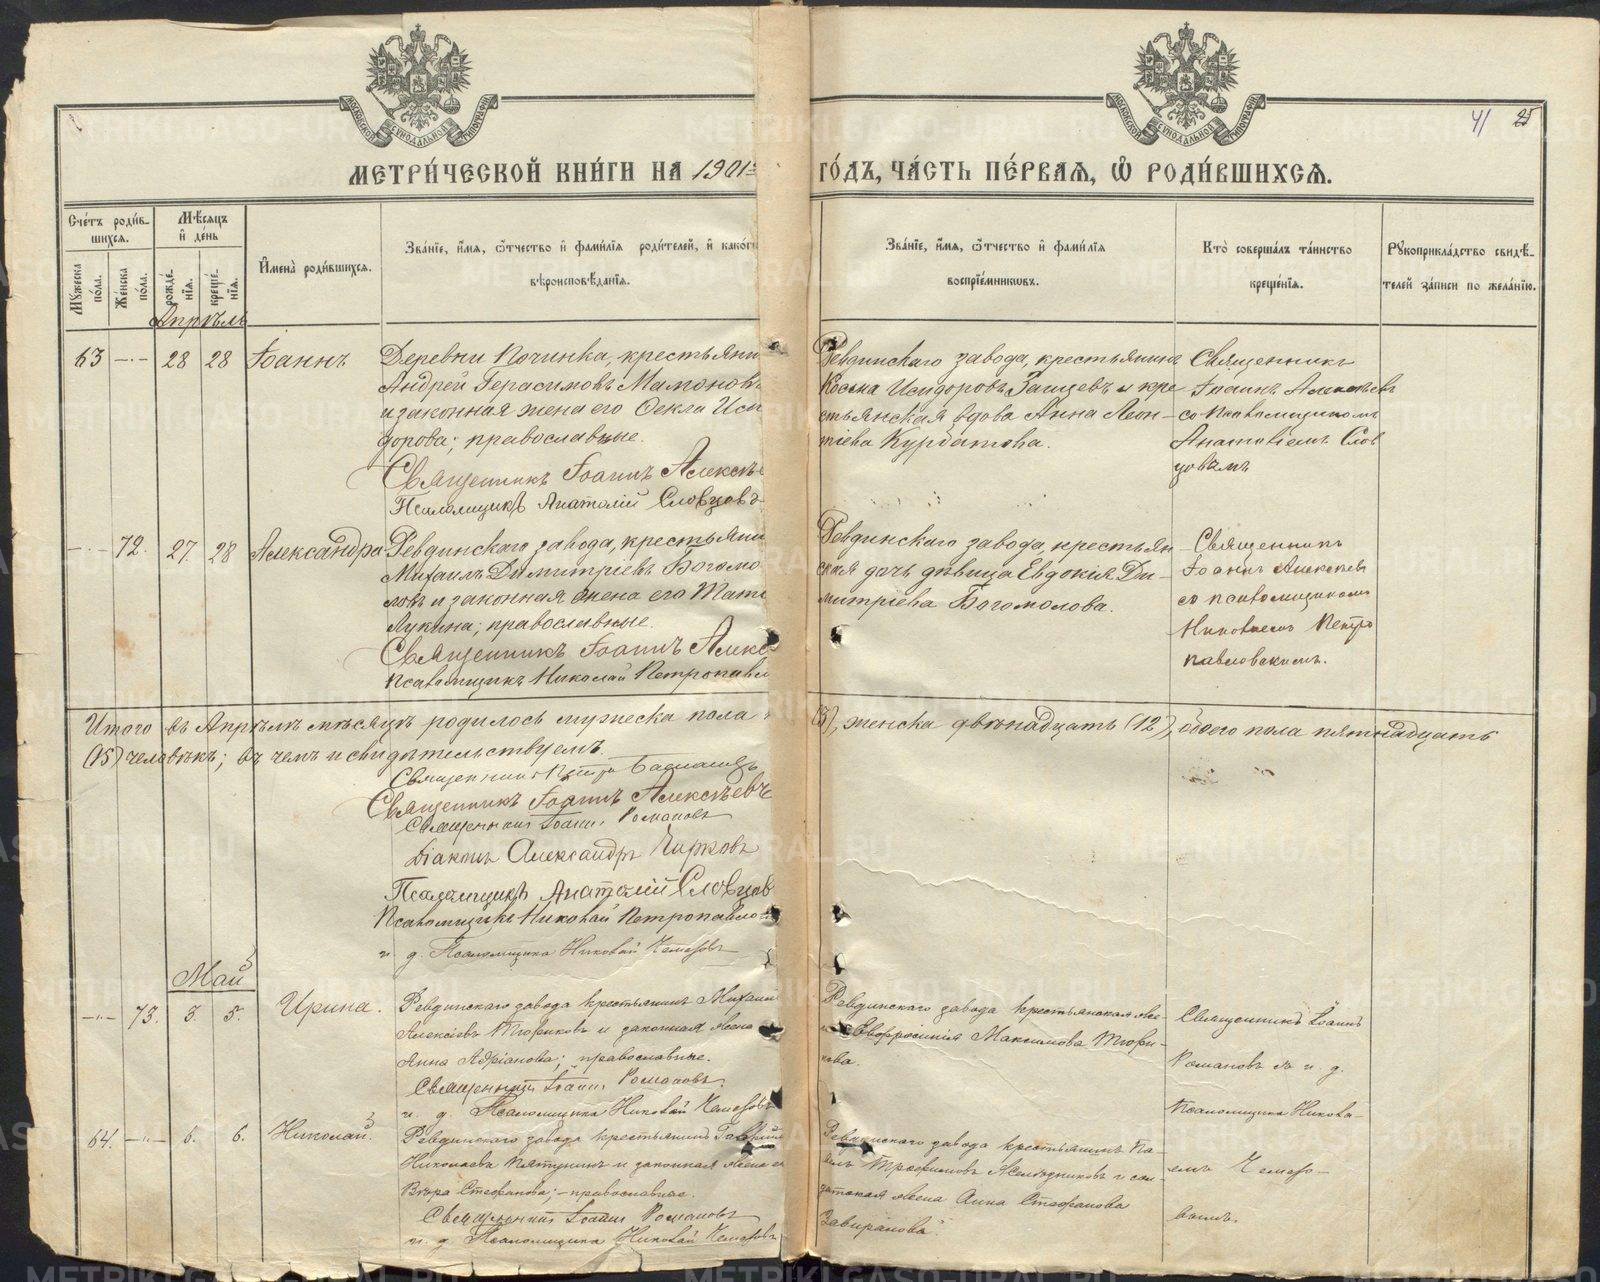 41 25
МЕТРИ́ЧЕСКОЙ КНИ́ГИ НА 1901 ГО́ДЪ, ЧА́СТЬ ПЕ́РВАЯ, Ѡ҆ РОДИ́ВШИХСѦ.
Сче́тъ роди́вшихся.
Мꙋжеска по́ла.
Же́нска по́ла.
Мѣ́сѧцъ и҆ де́нь
рожде́нїя.
креще́нїя.
И҆мена̀ роди́вшихсѧ.
Зва́нїе, и҆́мѧ, ѻ҆́тчество и҆ фами́лїѧ роди́телей, и҆ како́гѡ
вѣроисповѣ́данїѧ.
Зва́нїе, и҆́мѧ, ѻ҆́тчество и҆ фами́лїѧ
воспрїе́мникѡвъ.
Кто̀ соверша́лъ та́инство
креще́нїѧ.
Рꙋкоприкла́дство свидѣ́-
телей за́писи по жела́нїю.
Апрѣль
63 -„- 28 28 Іоаннъ
Деревни Починка, крестьяни
Андрей Герасимовъ Мамоновъ
и законная жена его Ѳекла Иси
дорова; православные.
Священникъ Іоаннъ Алексѣе
Псаломщикъ Анатолій Словцовъ
Ревдинскаго завода, крестьянинъ
Косьма Исидоровъ Заицевъ и кре-
стьянская вдова Анна Леон-
тіева Курбатова.
Священникъ
Іоаннъ Алексѣевъ
со Псаломщикомъ
Анатоліемъ Слов
цовымъ
-„- 72. 27. 28 Александра
Ревдинскаго завода, крестьяни
Михаилъ Димитріевъ Богомо
ловъ и законная жена его Тать
Лукина; православные.
Священникъ Іоаннъ Алекс
Псаломщикъ Николай Петропавл
Ревдинскаго завода, крестьян
ская дочь дѣвица Евдокія Ди-
митріева Богомолова.
Священникъ
Іоаннъ Алексѣев
со псаломщикомъ
Николаемъ Петро
павловскимъ.
Итого въ Апрѣлѣ мѣсяцѣ родилось мужеска пола (3), женска двѣнадцать (12), обоего пола пятнадцать
(15) человѣкъ; въ чемъ и свидѣтельствуемъ.
Священникъ Петръ
Священникъ Іоаннъ Алексѣевъ
Священникъ Іоаннъ Романовъ
Діаконъ Александръ Чирковъ
Псаломщикъ Анатолій Словцовъ
Псаломщикъ Николай Петропавло
и. д. Псаломщика Николай Чемезовъ
Май
-„- 73. 5. 5. Ирина.
Ревдинскаго завода крестьянинъ Михаил
Алексѣевъ Тюриковъ и законная жена
Анна Адріанова; православные.
Священникъ Іоаннъ Романовъ.
и. д. Псаломщика Николай Чемезовъ
Ревдинскаго завода крестьянская же-
на Евфросинія Максимова Тюри-
кова.
Священникъ Іоаннъ
Романовъ съ и. д.
Псаломщика Никола-
емъ Чемезо-
вымъ.
64. -„- 6. 6. Николай.
Ревдинскаго завода крестьянинъ Гавріил
Николаевъ Пятунинъ и законная жена ег
Вѣра Стефанова; - православные.
Священникъ Іоаннъ Романовъ
и. д. Псаломщика Николай Чемезовъ
Ревдинскаго завода крестьянинъ Па-
велъ Трофимовъ Желѣзниковъ и сол-
датская жена Анна Стефанова
Завиралова.
METRIKI.GASO-URAL.RU